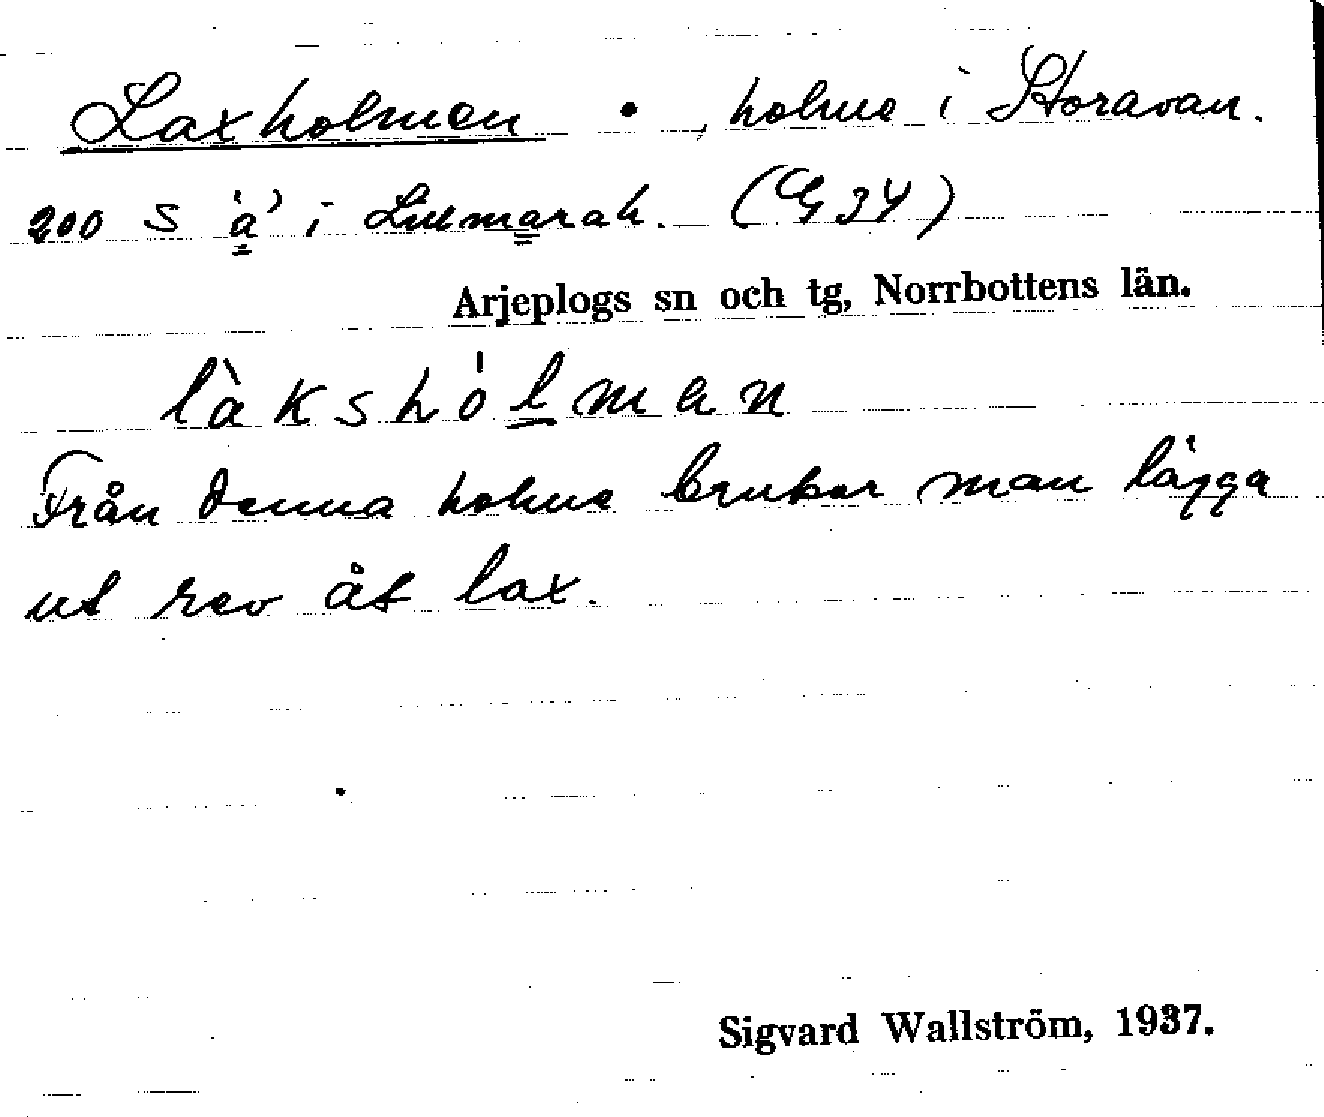 Laxholmen • , holme i Storavan.
200 S 'a' i Lillmarak. (G 34)
Arjeplogs sn och tg, Norrbottens län.
làkshólman
Från denna holme brukar man lägga
ut rev åt lax.
Sigvard Wallström, 1937.